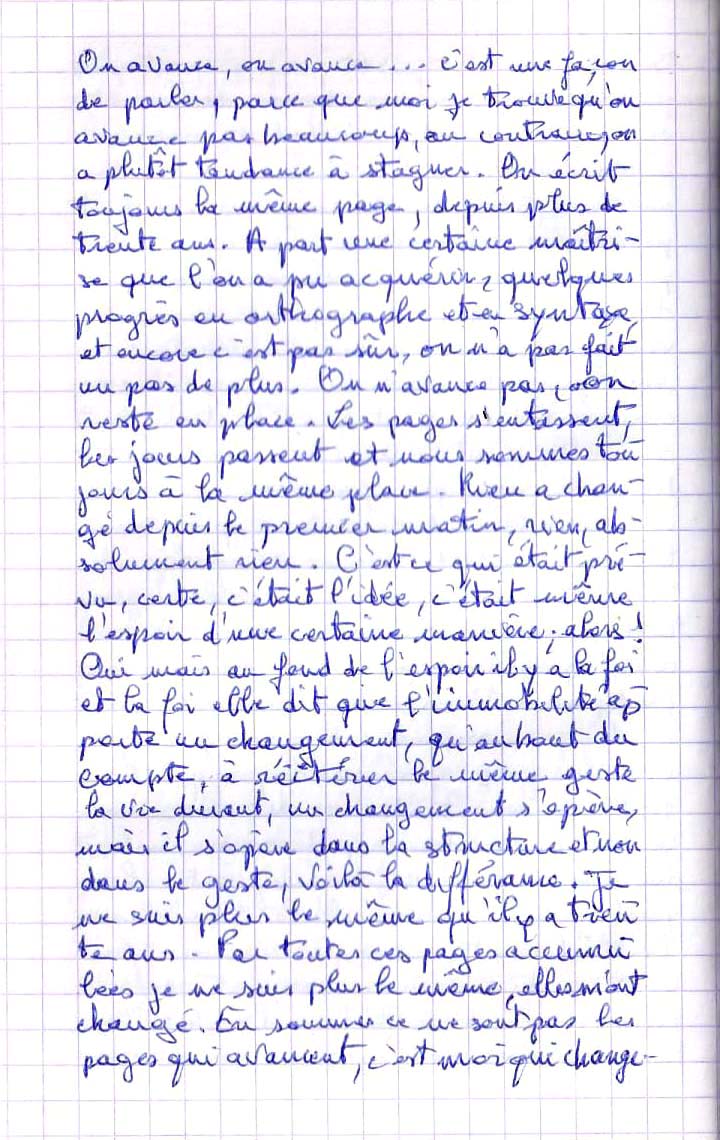 On avance, on avance... c'est une façon
de parler, parce que moi je trouve qu'on
avance pas beaucoup, au contraire, on
a plutôt tendance à stagner. On écrit
toujours la même page, depuis plus de
trente ans. A part une certaine maîtri-
se que l'on a pu acquérir, quelques
progrès en orthographe et en syntaxe,
et encore c'est pas sûr, on n'a pas fait
un pas de plus. On n'avance pas, on
reste en place. Les pages s'entassent,
les jours passent et nous sommes tou
jours à la même place. Rien a chan-
gé depuis le premier matin, rien, ab-
solument rien. C'est ce qui était pré-
vu, certe, c'était l'idée, c'était même
l'espoir d'une certaine manière; alors!
Oui mais au fond de l'espoir il y à la foi
et la foi elle dit que l'immobilité ap
porte un changement, qu'au bout du
compte, à réitérer le même geste
la vie durant, un changement s'opère,
mais il s'opère dans la structure et non
dans le geste, voilà la différance. Je
ne suis plus le même qu'il y a tren
te ans. Par toutes ces pages accumu
lées je ne suis plus le même, elles m'ont
changé. En somme ce ne sont pas les
pages qui avancent, c'est moi qui change-